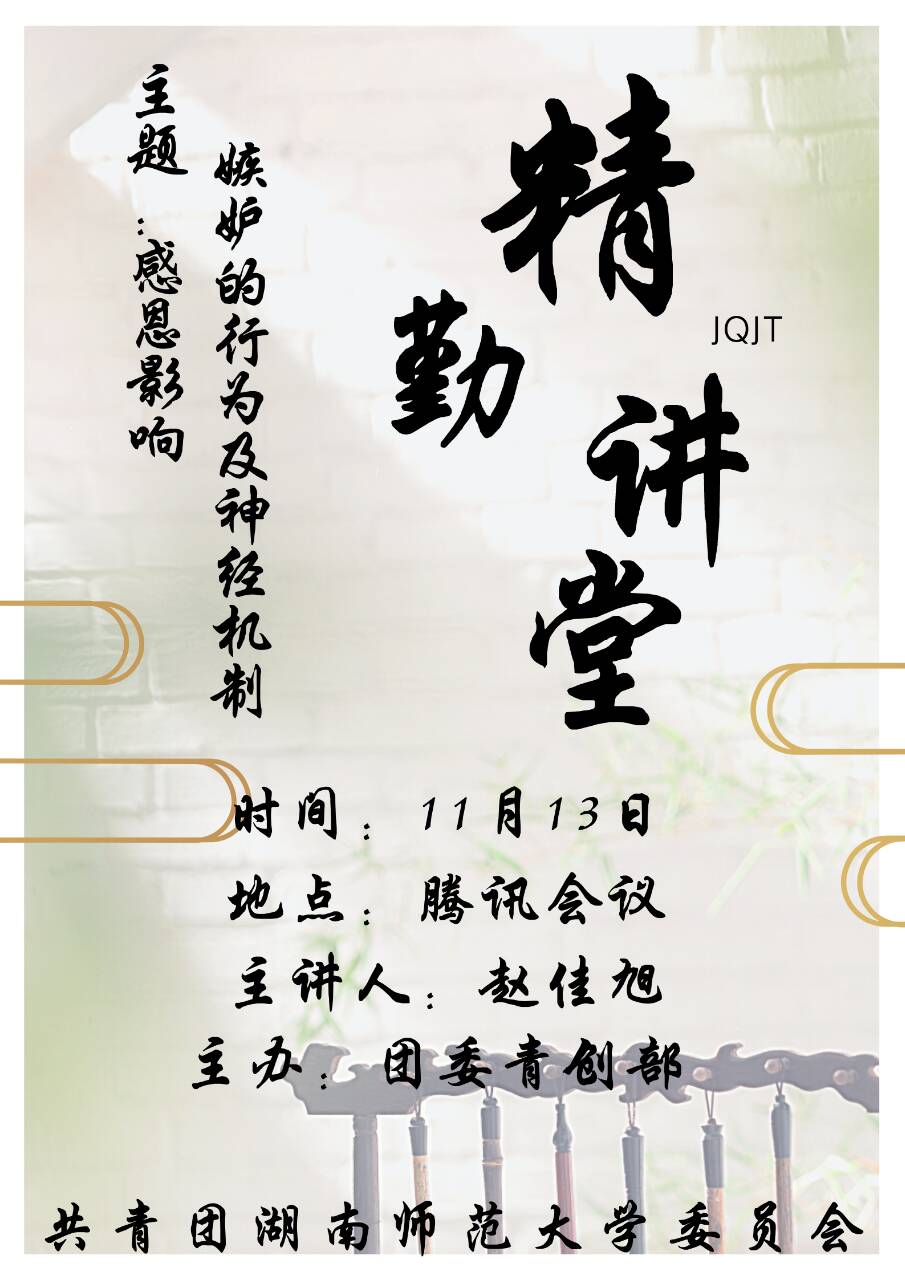 精勤讲堂
JQJT
主题:感恩影响
嫉妒的行为及神经机制
时间:11月13日
地点:腾讯会议
主讲人:赵佳旭
主办:团委青创部
共青团湖南师范大学委员会